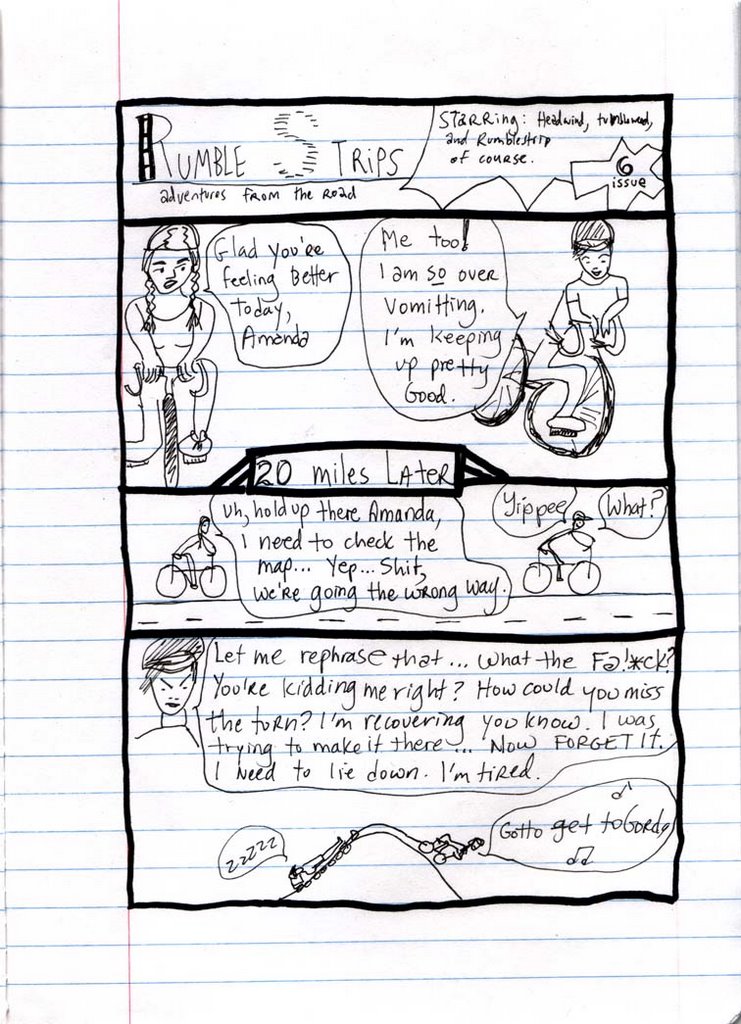 RUMBLE STRIPS
adventures from the road
Starring: Headwind, tumbleweed,
and Rumblestrip
of course.
6
issue
Glad you're
feeling Better
today,
Amanda
Me too!
I am so over
vomitting.
I'm keeping
up pretty
Good.
20 miles Later
uh, hold up there Amanda,
I need to check the
map... Yep... Shit,
we're going the wrong way.
Yippee
What?
Let me rephrase that... what the Fa!*ck?
You're kidding me right? How could you miss
the turn? I'm recovering you know. I was
trying to make it there... Now FORGET IT.
I need to lie down. I'm tired.
zzzzz
Gotto get to Gordo